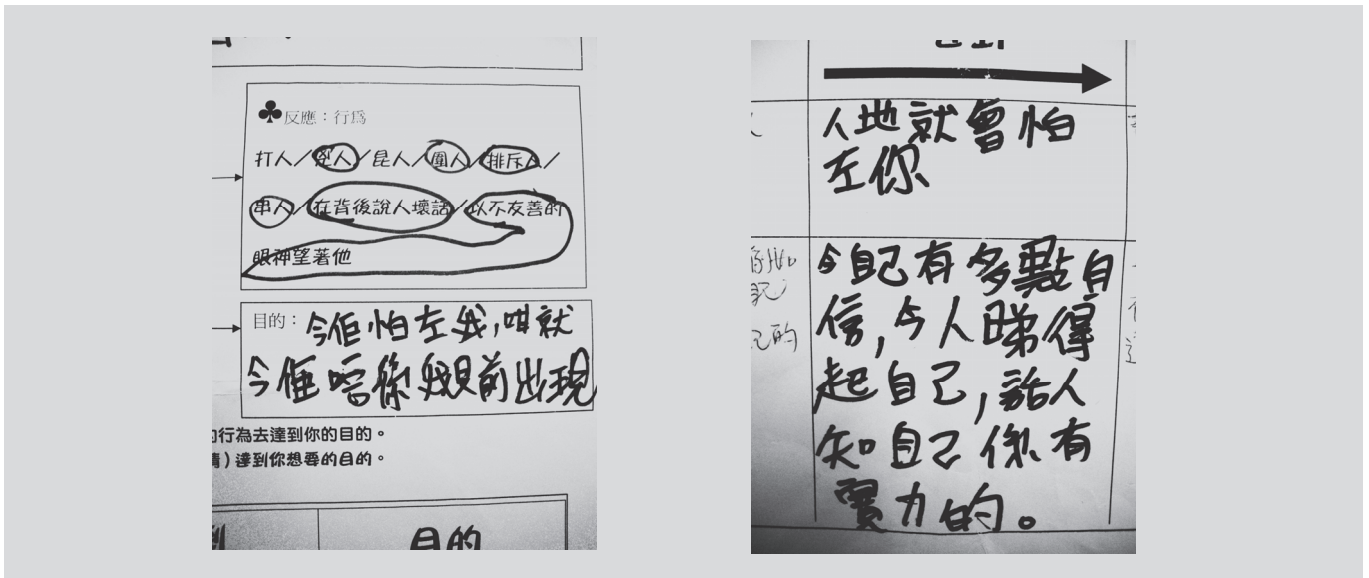 ♣反應：行為
打人／兇人／昆人／圍人／排斥人／
串人／在背後說人壞話／以不友善的
眼神望著他
目的：令佢怕左我，咁就
令佢唔係我眼前出現
行為去達到你的目的。
）達到你想要的目的。
目的
人地就會怕
左你
令自己有多點自
信，令人睇得
起自己，話人
知自己係有
實力的。